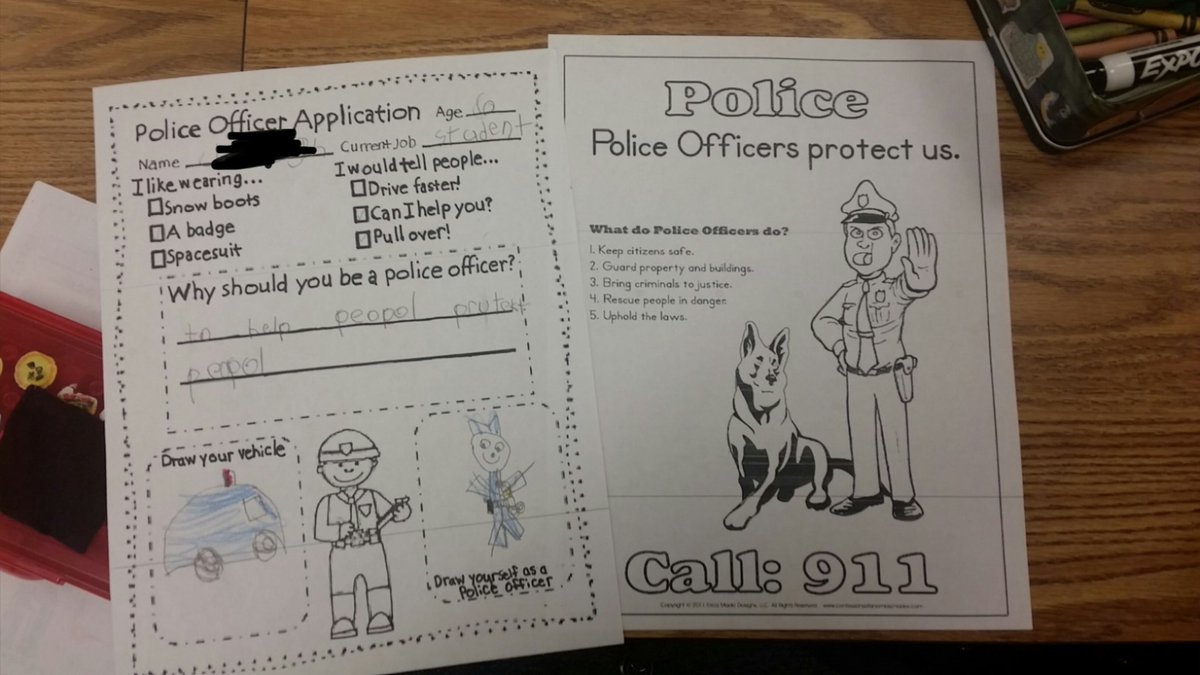 Police Officer Application Age 6
Name Current Job student
I like wearing...
Snow boots
A badge
Spacesuit
I would tell people...
Drive faster!
Can I help you?
Pull over!
Why should you be a police officer?
to help peopol
peopol
Draw your vehicle
Draw yourself as a
Police Officer
Police
Police Officers protect us.
What do Police Officers do?
1. Keep citizens safe.
2. Guard property and buildings.
3. Bring criminals to justice.
4. Rescue people in danger.
5. Uphold the laws.
Call: 911
EXPO